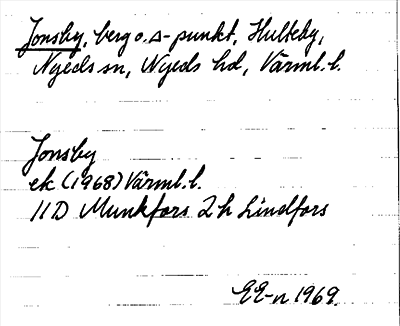 Jonsby, berg o. s-punkt, Hulteby,
Nyeds sn, Nyeds hd, Värml. l.
Jonsby
ek (1968) Värml. l.
11D Munkfors 2h Lindfors
EE-n 1969.